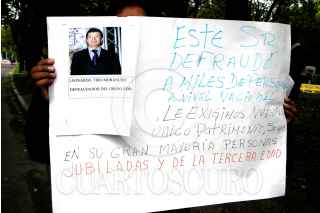 ESTE SR.
DEFRAUDÓ
A MILES DE PERSONAS
A NIVEL NACIONAL
LE EXIGIMOS
UNICO PATRIMONIO
EN SU GRAN MAYORÍA PERSONAS
JUBILADAS Y DE LA TERCERA EDAD
LEONARDO
DEFRAUDADOR DEL
CUARTOSCURO